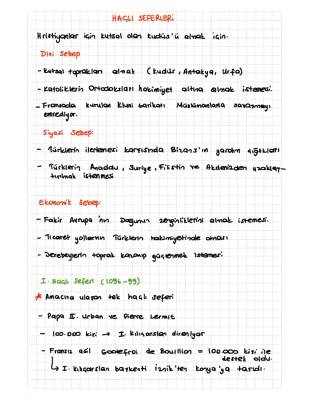 HAÇLI SEFERLERİ
Hristiyanlar için kutsal olan Kudüs'ü almak için.
Dini Sebep
- Kutsal toprakları almak (Kudüs, Antakya, Urfa)
- Katoliklerin Ortodoksları hakimiyet altına almak istemesi.
- Fransada kurulan Kluni tarikatı Müslümanlarla savaşmayı
emrediyor.
Siyasi Sebep:
- Türklerin ilerlemesi karşısında Bizans'ın yardım çığlıkları
- Türklerin Anadolu, Suriye, Filistin ve Akdenizden uzaklaş-
tırılmak istenmesi
Ekonomik Sebep:
- Fakir Avrupa'nın Doğunun zenginliklerini almak istemesi.
- Ticaret yollarının Türklerin hakimiyetinde olması
- Derebeylerin toprak kazanıp güçlenmek istemesi
I. Haçlı Seferi (1096-99)
* Amacına ulaşan tek haçlı seferi
- Papa II. Urban ve Pierre Lermit
- 100.000 kişi → I. Kılıçarslan direniyor
- Fransız asil Godefroi de Bouillon = 100.000 kişi ile
destek oldu.
↳ I. Kılıçarslan başkenti İznik'ten Konya'ya taşıdı.